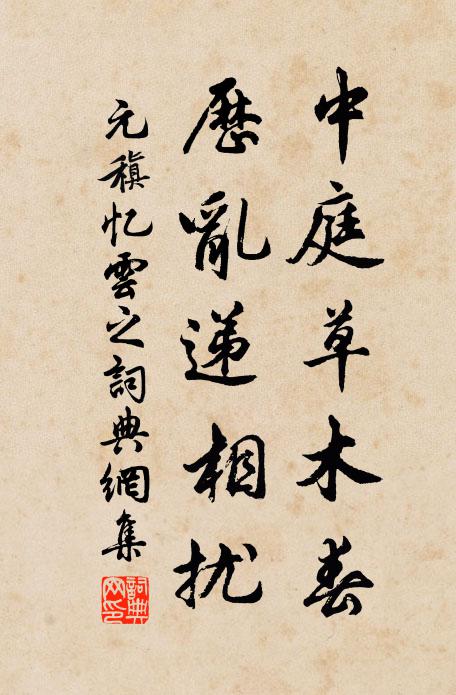 中庭草木春
歷亂递相扰
元稹忆雲之詞典網集
詞典網印